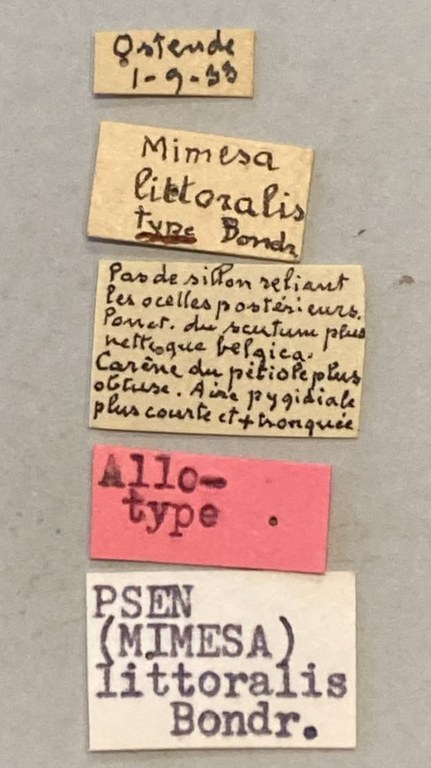 Ostende
1-9-33
Mimesa
littoralis
type Bondr
Pas de sillon reliant
les ocelles postérieurs.
Ponct. du scutum plus
nette que belgica.
Carène du pétiole plus
obtuse. Aire pygidiale
plus courte et + tronquée
Allo-
type
PSEN
(MIMESA)
littoralis
Bondr.